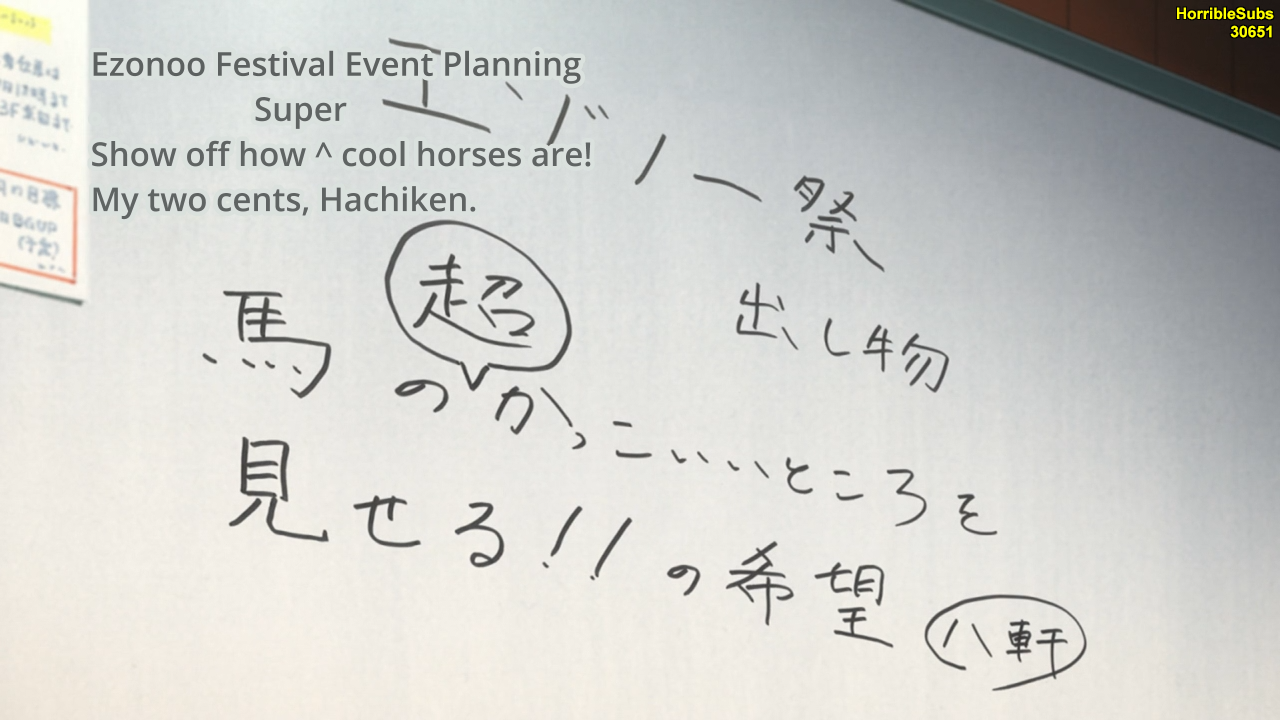 HorribleSubs
30651
Ezonoo Festival Event Planning
Super
Show off how ^ cool horses are!
My two cents, Hachiken.
エゾノー祭
出し物
超
馬のかっこいいところを
見せる!!の希望 八軒